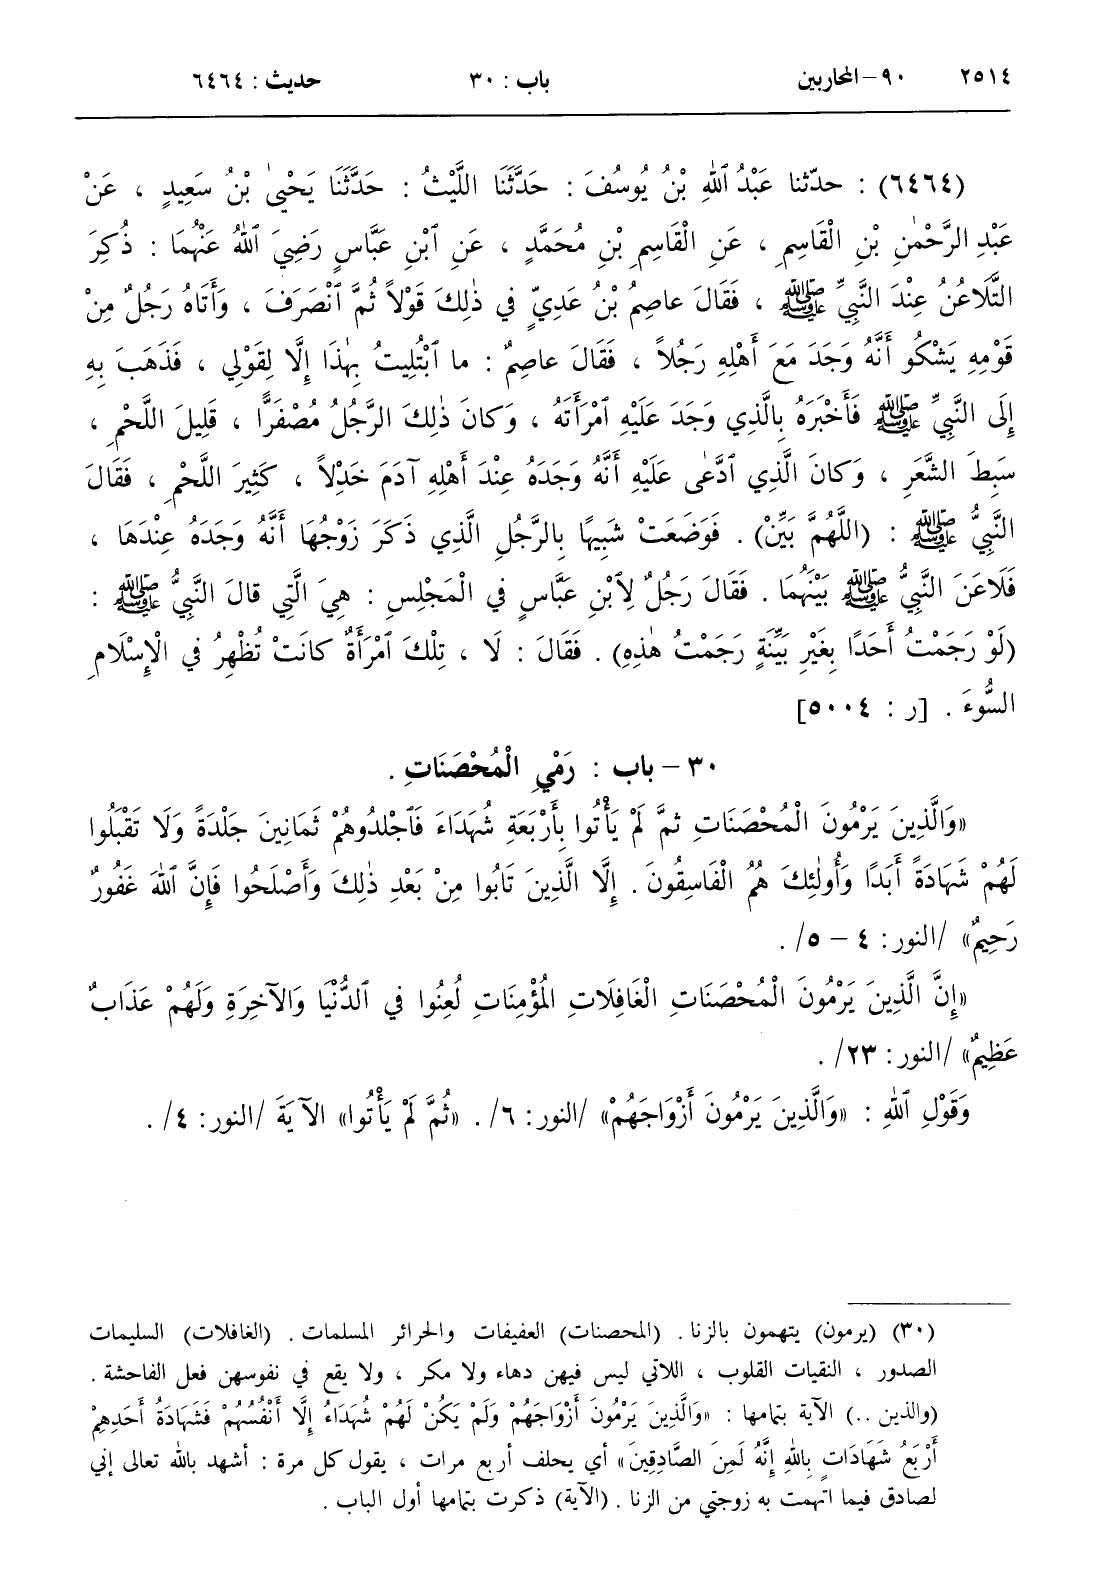 ٢٥١٤ ٩٠ – المحاربين باب : ٣٠ حديث : ٦٤٦٤
(٦٤٦٤) : حدّثنا عَبْدُ اللهِ بْنُ يُوسُفَ : حَدَّثَنَا اللَّيْثُ : حَدَّثَنَا يَحْيىٰ بْنُ سَعِيدٍ ، عَنْ
عَبْدِ الرَّحْمٰنِ بْنِ الْقَاسِمِ ، عَنِ الْقَاسِمِ بْنِ مُحَمَّدٍ ، عَنِ ٱبْنِ عَبَّاسٍ رَضِيَ ٱللهُ عَنْهُمَا : ذُكِرَ
التَّلَاعُنُ عِنْدَ النَّبِيِّ ﷺ ، فَقَالَ عاصِمُ بْنُ عَدِيٍّ في ذٰلِكَ قَوْلاً ثُمَّ ٱنْصَرَفَ ، وَأَتَاهُ رَجُلٌ مِنْ
قَوْمِهِ يَشْكُو أَنَّهُ وَجَدَ مَعَ أَهْلِهِ رَجُلاً ، فَقَالَ عاصِمٌ : ما ٱبْتُلِيتُ بِهٰذَا إِلَّا لِقَوْلِي ، فَذَهَبَ بِهِ
إِلَى النَّبِيِّ ﷺ فَأَخْبَرَهُ بِالَّذِي وَجَدَ عَلَيْهِ ٱمْرَأَتَهُ ، وَكانَ ذٰلِكَ الرَّجُلُ مُصْفَرًّا ، قَلِيلَ اللَّحْمِ ،
سَبِطَ الشَّعَرِ ، وَكانَ الَّذِي ٱدَّعٰى عَلَيْهِ أَنَّهُ وَجَدَهُ عِنْدَ أَهْلِهِ آدَمَ خَدْلاً ، كَثِيرَ اللَّحْمِ ، فَقَالَ
النَّبِيُّ ﷺ : (اللَّهُمَّ بَيِّنْ) . فَوَضَعَتْ شَبِيهًا بِالرَّجُلِ الَّذِي ذَكَرَ زَوْجُهَا أَنَّهُ وَجَدَهُ عِنْدَهَا ،
فَلَاعَنَ النَّبِيُّ ﷺ بَيْنَهُمَا . فَقَالَ رَجُلٌ لِٱبْنِ عَبَّاسٍ في الْمَجْلِسِ : هِيَ الَّتِي قالَ النَّبِيُّ ﷺ :
(لَوْ رَجَمْتُ أَحَدًا بِغَيْرِ بَيِّنَةٍ رَجَمْتُ هٰذِهِ) . فَقَالَ : لَا ، تِلْكَ ٱمْرَأَةٌ كانَتْ تُظْهِرُ في الْإِسْلَامِ
السُّوءَ . [ر : ٥٠٠٤]
٣٠ – باب : رَمْيِ الْمُحْصَنَاتِ .
«وَالَّذِينَ يَرْمُونَ الْمُحْصَنَاتِ ثمَّ لَمْ يَأْتُوا بِأَرْبَعَةِ شُهَدَاءَ فَٱجْلِدُوهُمْ ثَمَانِينَ جَلْدَةً وَلَا تَقْبَلُوا
لَهُمْ شَهَادَةً أَبَدًا وَأُولٰئِكَ هُمُ الْفَاسِقُونَ . إِلَّا الَّذِينَ تَابُوا مِنْ بَعْدِ ذٰلِكَ وَأَصْلَحُوا فَإِنَّ ٱللهَ غَفُورٌ
رَحِيمٌ» /النور: ٤ – ٥/ .
«إِنَّ الَّذِينَ يَرْمُونَ الْمُحْصَنَاتِ الْغَافِلَاتِ المُؤْمِنَاتِ لُعِنُوا في ٱلدُّنْيَا وَالآخِرَةِ وَلَهُمْ عَذَابٌ
عَظِيمٌ» /النور: ٢٣/ .
وَقَوْلِ ٱللهِ : «وَالَّذِينَ يَرْمُونَ أَزْوَاجَهُمْ» /النور: ٦/ . «ثُمَّ لَمْ يَأْتُوا» الآيَةَ /النور: ٤/ .
(٣٠) (يرمون) يتهمون بالزنا . (المحصنات) العفيفات والحرائر المسلمات . (الغافلات) السليمات
الصدور ، النقيات القلوب ، اللاتي ليس فيهن دهاء ولا مكر ، ولا يقع في نفوسهن فعل الفاحشة .
(والذين ..) الآية بتمامها : «وَالَّذِينَ يَرْمُونَ أَزْوَاجَهُمْ وَلَمْ يَكُنْ لَهُمْ شُهَدَاءُ إِلَّا أَنْفُسُهُمْ فَشَهَادَةُ أَحَدِهِمْ
أَرْبَعُ شَهَادَاتٍ بِاللهِ إِنَّهُ لَمِنَ الصَّادِقِينَ» أي يحلف أربع مرات ، يقول كل مرة : أشهد بالله تعالى إني
لصادق فيما اتهمت به زوجتي من الزنا . (الآية) ذكرت بتمامها أول الباب .